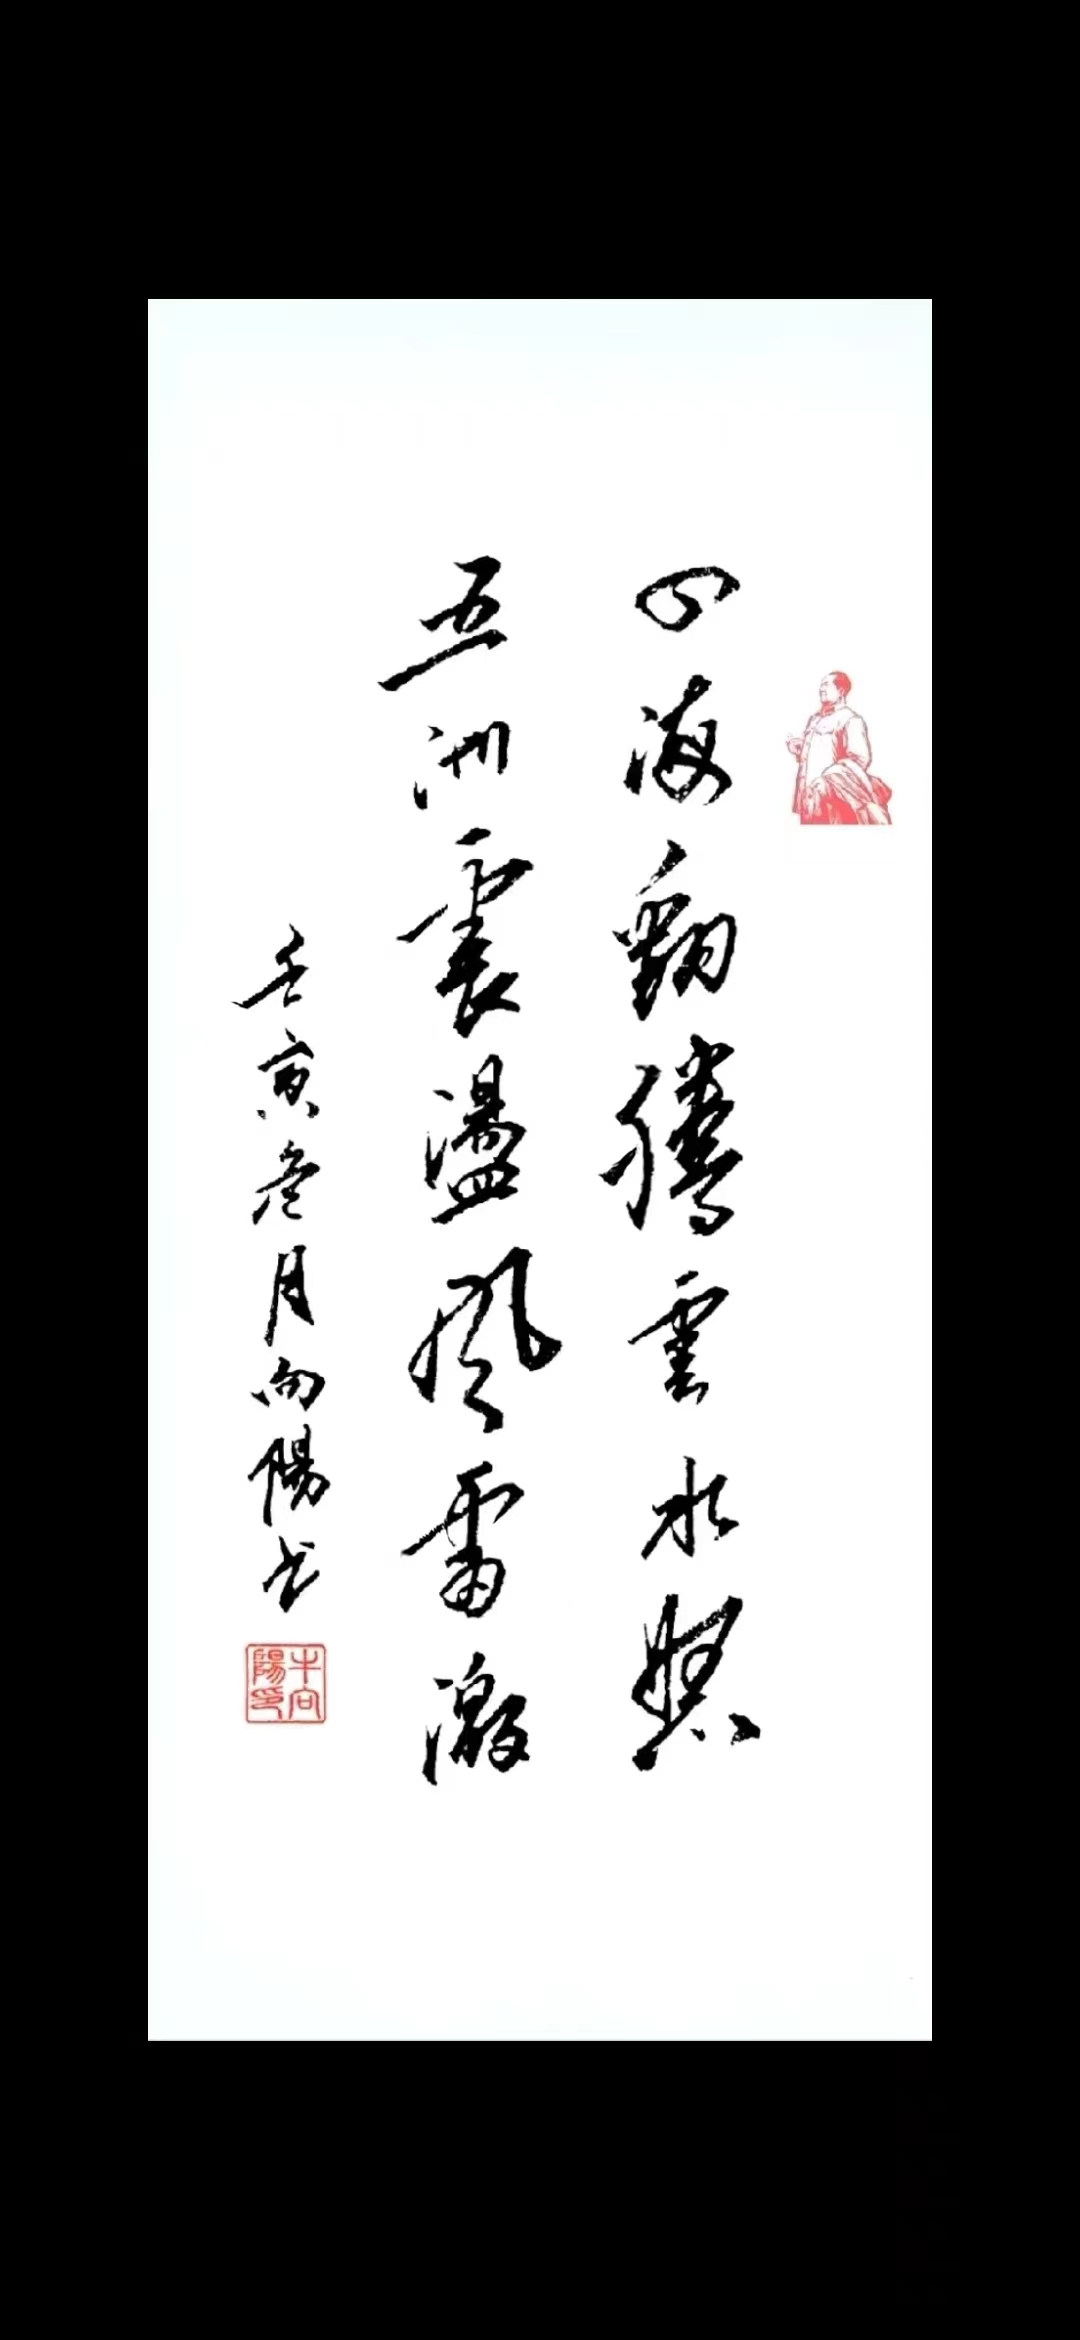 四海翻騰雲水怒
五洲震盪風雷激
壬寅叁月向陽书
牛向陽印